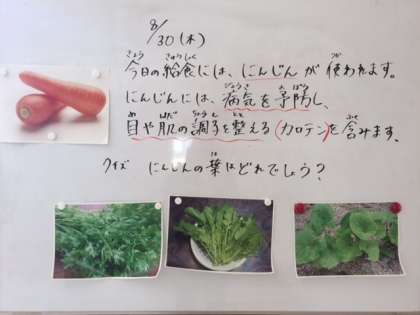 8/30(木)
今日の給食には、にんじんが使われます。
にんじんには、病気を予防し、
目や肌の調子を整える(カロテン)を含みます。
クイズ にんじんの葉はどれでしょう?